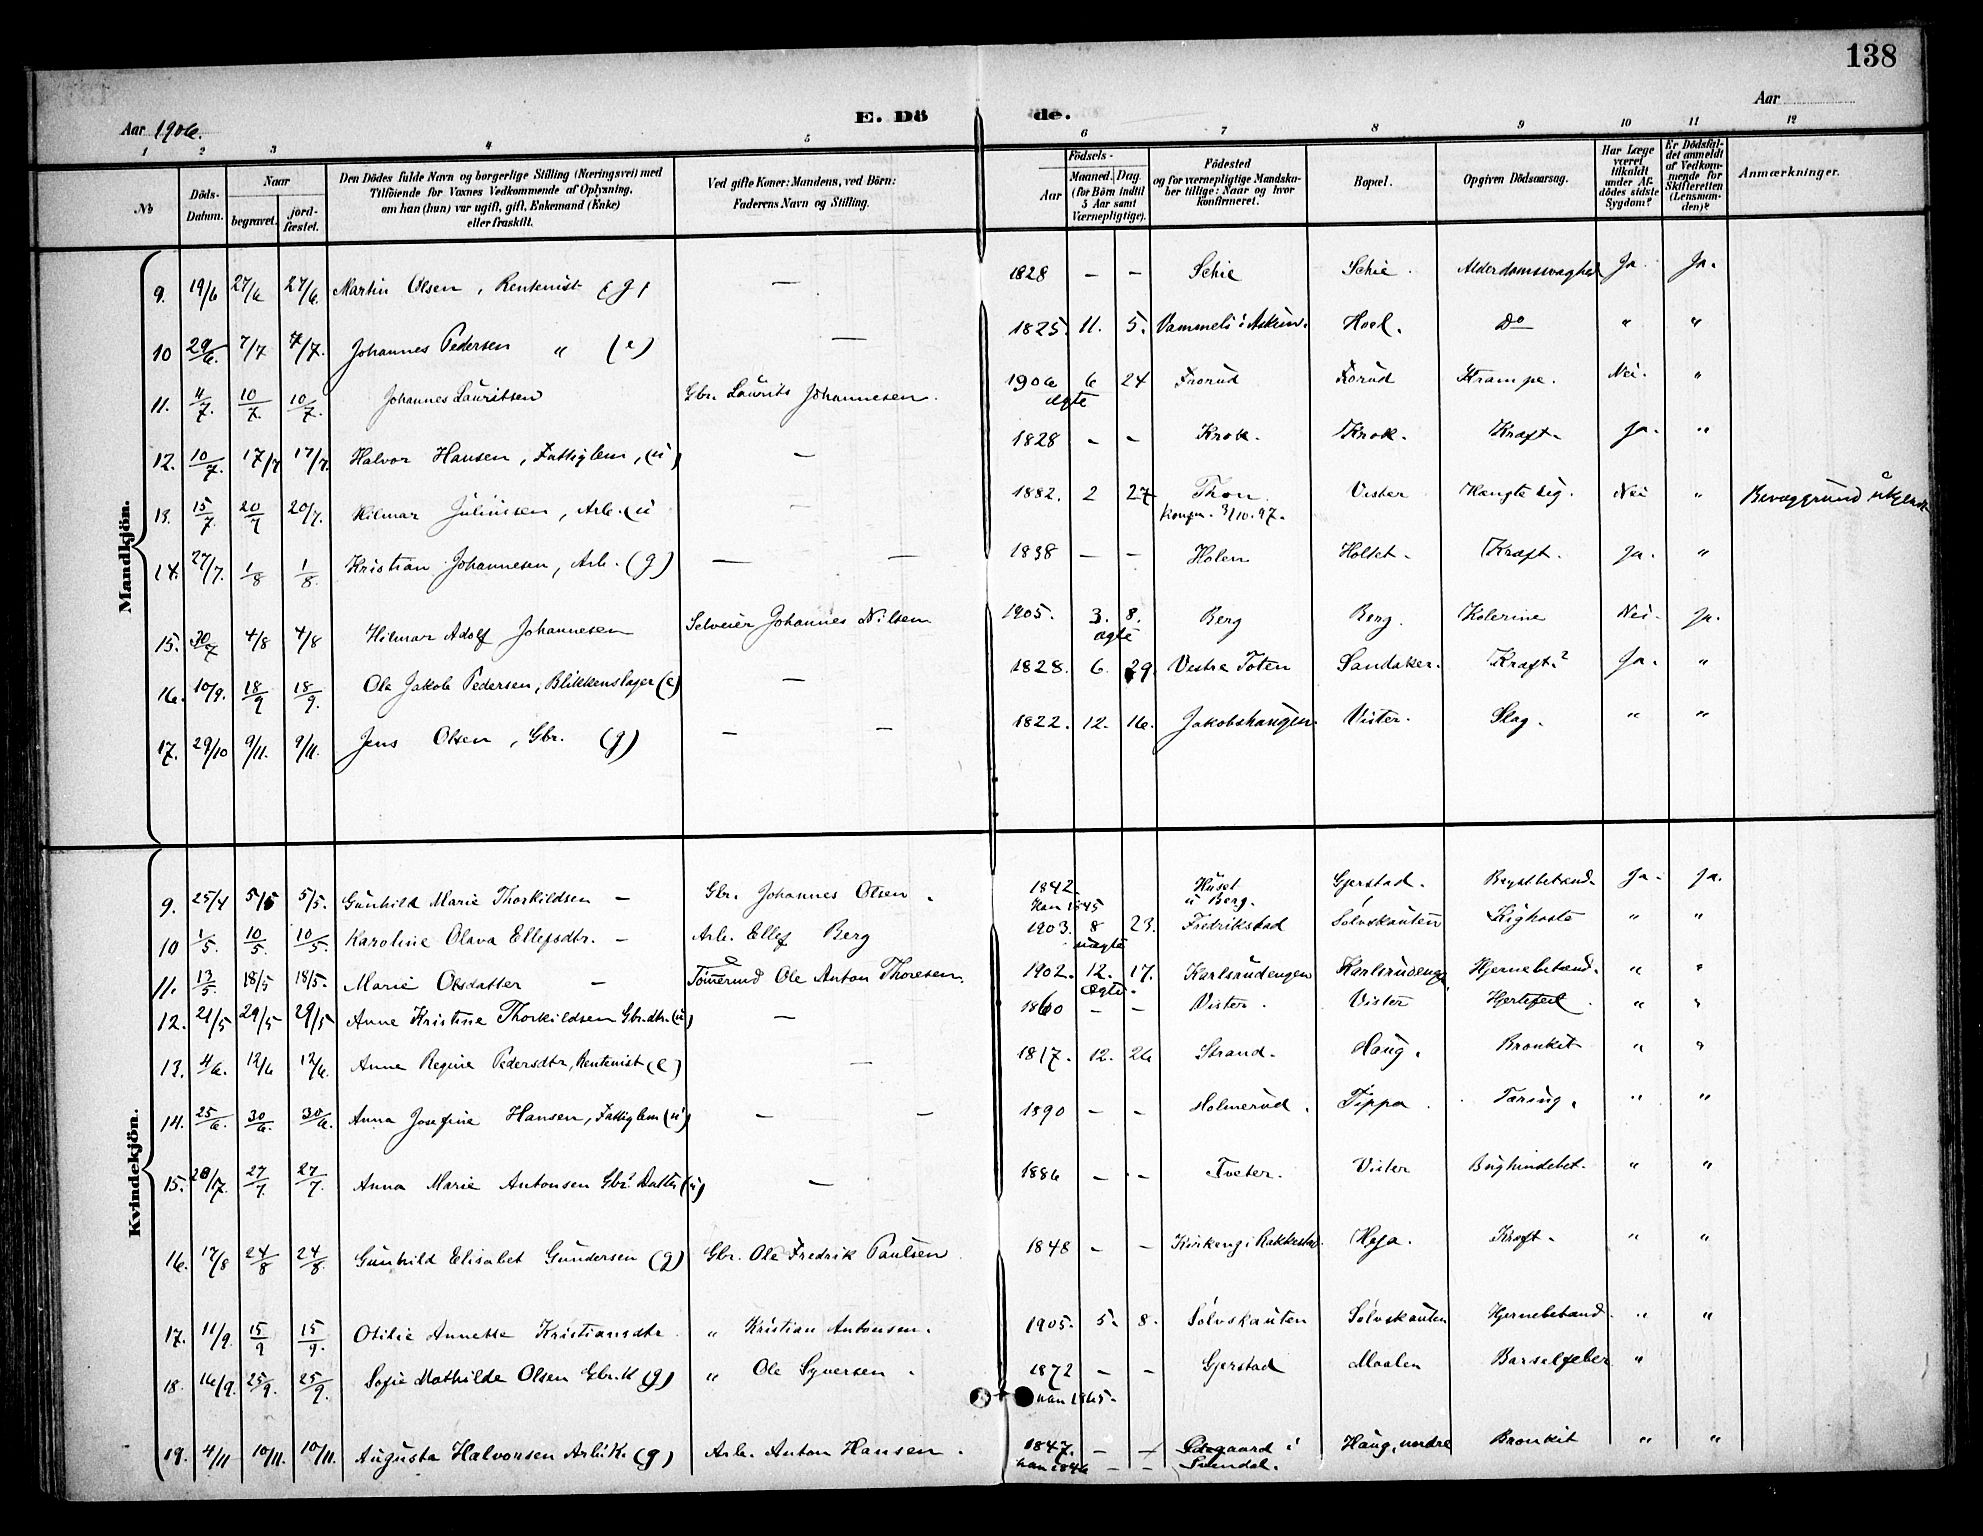 138
Aar 1906. E. Dö de. Aar
1 2 3 4 5 6 7 8 9 10 11 12
№ Döds-Datum. Naar begravet. jord-fæstet. Den Dödes fulde Navn og borgerlige Stilling (Næringsvei) med Tilföiende for Voxnes Vedkommende af Oplysning, om han (hun) var ugift, gift, Enkemand (Enke) eller fraskilt. Ved gifte Koner: Mandens, ved Börn: Faderens Navn og Stilling. Födsels- Aar Maaned. Dag. (for Börn indtil 5 Aar samt Værnepligtige). Födested og for værnepligtige Mandskaber tillige: Naar og hvor konfirmeret. Bopæl. Opgiven Dödsaarsag. Har Læge været tilkaldt under Afdödes sidste Sygdom? Er Dödsfaldet anmeldt af Vedkommende for Skifteretten (Lensmanden)? Anmærkninger.
Mandkjön.
9. 19/6 27/6 27/6. Martin Olsen, Rentenist (g) — 1828 — — Schie Schie. Alderdomssvaghed Ja. Ja.
10 29/6. 7/7 7/7. Johannes Pedersen " (e) — 1825. 11. 5. Vammeli i Askim. Hoel. Do " "
11. 4/7. 10/7. 10/7. Johannes Lauritsen Gbr. Laurits Johannesen. 1906 6 24 Frorud Forud Krampe. Nei. "
ægte
12. 10/7. 17/7 17/7. Halvor Hansen, Fattiglem, (u) — 1828 — — Krok. Krok. Kræft. Ja. "
13. 15/7. 20/7 20/7. Hilmar Juliussen, Arb. (u — 1882. 2 27 Thon. Vister Hængte sig. Nei " Bevæggrund ukjendt
Konfm. 3/10. 97.
14. 27/7. 1/8 1/8. Kristian Johannesen, Arb. (g) — — 1838 — — Holen Holtet. Kræft. Ja. "
15. 30/7 4/8 4/8 Hilmar Adolf Johannesen Selveier Johannes Nilsen 1905. 3. 8. Berg Berg. Kolerine Nei. Ja.
ægte
16. 10/9. 18/9 18/9. Ole Jakob Pedersen, Blikkenslager (e) — 1828. 6. 29. Vestre Toten Sandaker. Kræft? Ja. "
17. 29/10 9/11. 9/11. Jens Olsen, Gbr. (g) — — 1822. 12. 16. Jakobshaugen. Vister. Slag. " "
Kvindekjön.
9. 25/4 5/5 5/5. Gunhild Marie Thorkildsen — Gbr. Johannes Olsen. 1842. Huset Gjerstad. Brystbetænd. Ja. Ja.
Han 1845 u Berg.
10 1/5. 10/5 10/5. Karoline Olava Ellefsdtr. — Arb. Ellef Berg 1903. 8 23. Fredrikstad Sølvskauten Kighoste " "
uægte
11. 13/5. 18/5 18/5. Marie Olsdatter — Tømmermd Ole Anton Thoresen. 1902. 12. 17. Karlsrudengen Karlsrudenge Hjernebetænd. " "
ægte.
12. 21/5 29/5 29/5 Anne Kristine Thorkildsen Gbr.dtr. (u) — 1860 — — Vister. Vister Hjertefeil. " "
13. 4/6. 12/6 12/6. Anne Regine Pedersdtr, Rentenist (e) — 1817. 12. 26 Strand. Haug. Bronkit " "
14. 25/6. 30/6. 30/6. Anna Josefine Hansen, Fattiglem (u) — — 1890 — — Holmerud. Tippa. Tæring. " "
15. 20/7. 27/7. 27/7. Anna Marie Antonsen Gbr. Datter (u) — 1886 — — Tveter. Vister Bughindebet. " "
16. 17/8 24/8 24/8. Gunhild Elisabet Gundersen (g) Gbr. Ole Fredrik Paulsen. 1848 — — Kirkeng i Rakkestad. Høja. Kræft. " "
17. 11/9. 15/9 15/9. Otilie Annette Kristiansdtr. " Kristian Antonsen. 1905. 5. 8. Sølvskauten Sølvskauten Hjernebetænd. " "
18. 16/9. 25/9. 25/9. Sofie Mathilde Olsen Gbr.K (g) " Ole Syversen. 1872 — — Gjerstad Moalen Barselfeber "
han 1865.
19. 4/11 10/11. 10/11. Augusta Halvorsen Arb.K. (g) Arb. Anton Hansen. 1847. — — Ødegaard i Haug, nordre Bronkit " "
han 1846 — — Svendal.